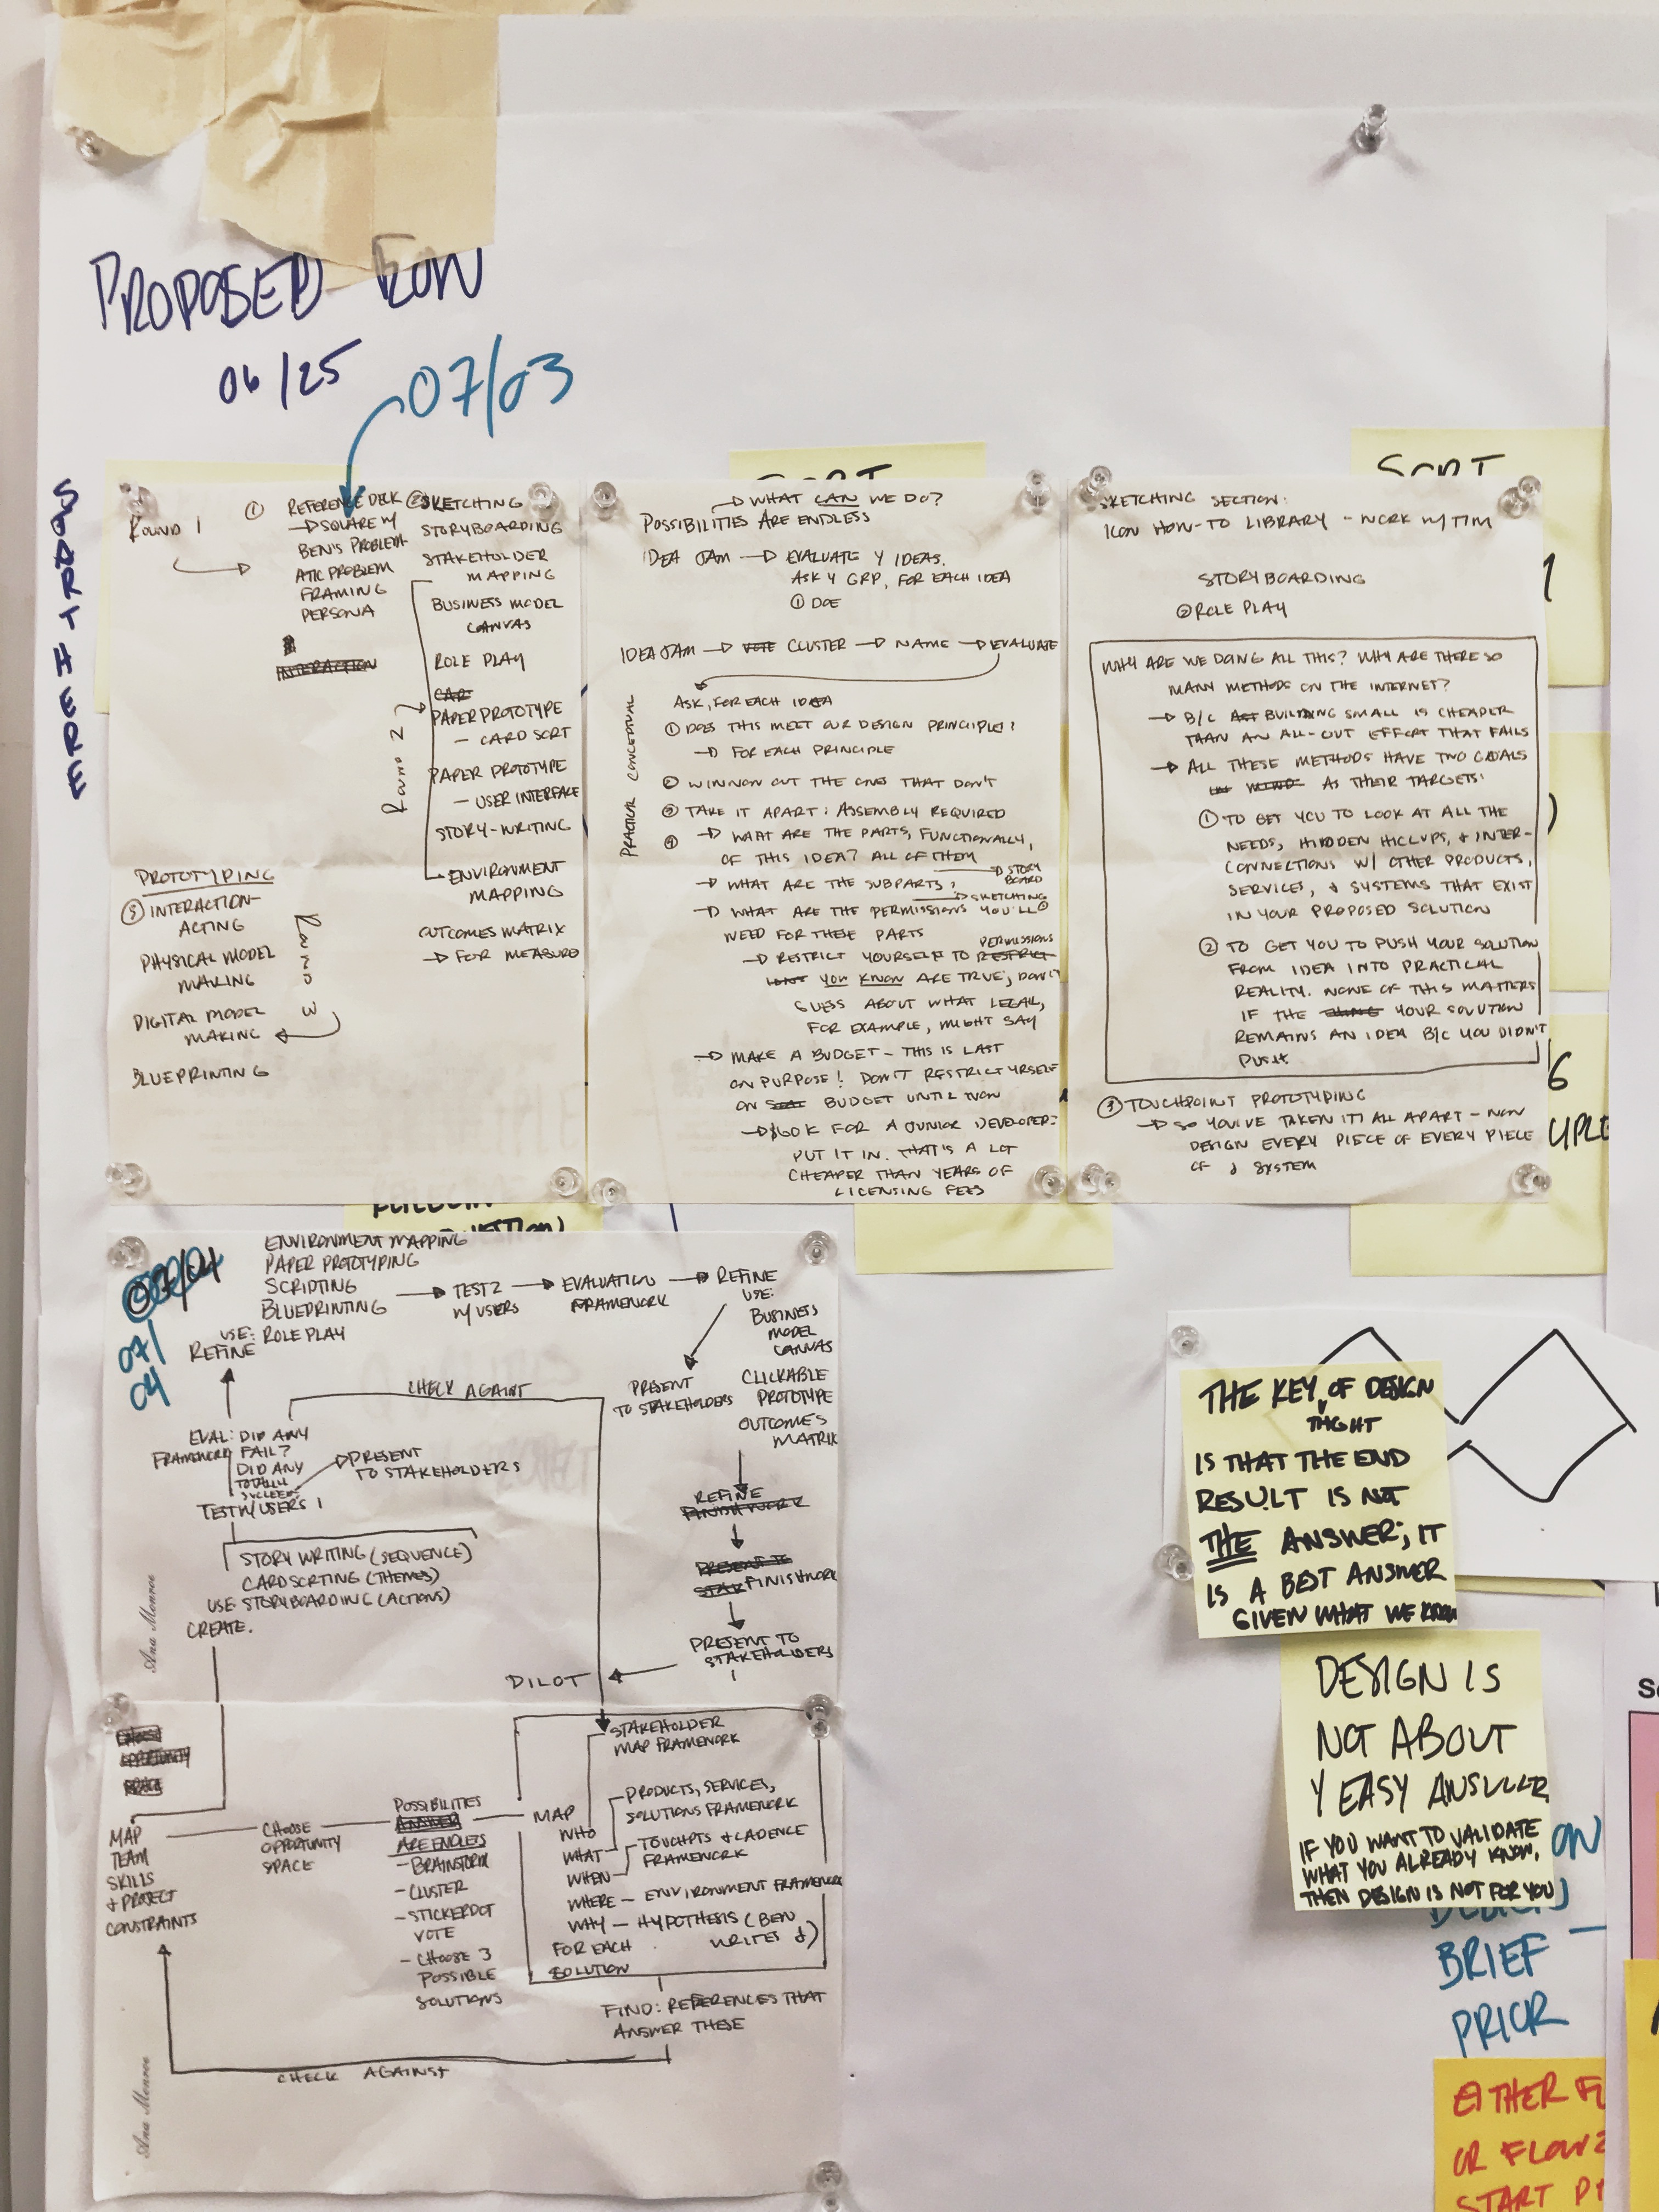 PROPOSED FLOW
06/25
07/03
START HERE
ROUND 1
① REFERENCE DECK
→ SQUARE W/
BEN'S PROBLEM
ATIC PROBLEM
FRAMING
PERSONA
INTERACTION
② SKETCHING
STORYBOARDING
STAKEHOLDER
MAPPING
BUSINESS MODEL
CANVAS
ROLE PLAY
CAR
PAPER PROTOTYPE
- CARD SORT
PAPER PROTOTYPE
- USER INTERFACE
STORY-WRITING
ENVIRONMENT
MAPPING
OUTCOMES MATRIX
→ FOR MEASURE
ROUND 2
PROTOTYPING
③ INTERACTION-
ACTING
PHYSICAL MODEL
MAKING
DIGITAL MODEL
MAKING
BLUEPRINTING
ROUND 3
→ WHAT CAN WE DO?
POSSIBILITIES ARE ENDLESS
IDEA JAM → EVALUATE Y IDEAS.
ASK Y GRP, FOR EACH IDEA
① DOE
IDEA JAM → VOTE CLUSTER → NAME → EVALUATE
PRACTICAL CONCEPTUAL
ASK, FOR EACH IDEA
① DOES THIS MEET OUR DESIGN PRINCIPLE?
→ FOR EACH PRINCIPLE
② WINNOW OUT THE ONES THAT DON'T
③ TAKE IT APART: ASSEMBLY REQUIRED
④ → WHAT ARE THE PARTS, FUNCTIONALLY,
OF THIS IDEA? ALL OF THEM
→ STORY
BOARD
→ WHAT ARE THE SUBPARTS?
→ SKETCHING
→ WHAT ARE THE PERMISSIONS YOU'LL
NEED FOR THESE PARTS
PERMISSIONS
→ RESTRICT YOURSELF TO RESTRICT
YOU KNOW ARE TRUE; DON'T
GUESS ABOUT WHAT LEGAL,
FOR EXAMPLE, MIGHT SAY
→ MAKE A BUDGET - THIS IS LAST
ON PURPOSE! DON'T RESTRICT YRSELF
ON BUDGET UNTIL NOW
→ $60K FOR A JUNIOR DEVELOPER?
PUT IT IN. THAT'S A LOT
CHEAPER THAN YEARS OF
LICENSING FEES
SKETCHING SECTION:
ICON HOW-TO LIBRARY - WORK W/ TIM
STORYBOARDING
② ROLE PLAY
WHY ARE WE DOING ALL THIS? WHY ARE THERE SO
MANY METHODS ON THE INTERNET?
→ B/C BUILDING SMALL IS CHEAPER
THAN AN ALL-OUT EFFORT THAT FAILS
→ ALL THESE METHODS HAVE TWO GOALS
AS THEIR TARGETS:
① TO GET YOU TO LOOK AT ALL THE
NEEDS, HIDDEN HICCUPS, & INTER-
CONNECTIONS W/ OTHER PRODUCTS,
SERVICES, & SYSTEMS THAT EXIST
IN YOUR PROPOSED SOLUTION
② TO GET YOU TO PUSH YOUR SOLUTION
FROM IDEA INTO PRACTICAL
REALITY. NONE OF THIS MATTERS
IF THE YOUR SOLUTION
REMAINS AN IDEA B/C YOU DIDN'T
PUSH
③ TOUCHPOINT PROTOTYPING
→ SO YOU'VE TAKEN IT ALL APART - NOW
DESIGN EVERY PIECE OF EVERY PIECE
OF Y SYSTEM
07/04
07/
04
ENVIRONMENT MAPPING
PAPER PROTOTYPING
SCRIPTING
BLUEPRINTING
USE: ROLE PLAY
REFINE
→ TEST 2
W/ USERS
→ EVALUATION
FRAMEWORK
→ REFINE
USE:
BUSINESS
MODEL
CANVAS
CLICKABLE
PROTOTYPE
OUTCOMES
MATRIX
PRESENT
TO STAKEHOLDERS
CHECK AGAINT
EVAL: DID ANY
FRAMEWORK FAIL?
DID ANY
TOTALLY
SUCCEED?
→ PRESENT
TO STAKEHOLDERS
TEST W/ USERS 1
STORY WRITING (SEQUENCE)
CARDSORTING (THEMES)
USE: STORYBOARDING (ACTIONS)
CREATE.
REFINE
FINISH WORK
PRESENT TO
STAK FINISH WORK
PRESENT TO
STAKEHOLDERS
PILOT
Ana Monroe
CHOOSE
OPPORTUNITY
SPACE
MAP
TEAM
SKILLS
+ PROJECT
CONSTRAINTS
CHOOSE
OPPORTUNITY
SPACE
POSSIBILITIES
ANSWER
ARE ENDLESS
- BRAINSTORM
- CLUSTER
- STICKERDOT
VOTE
- CHOOSE 3
POSSIBLE
SOLUTIONS
STAKEHOLDER
MAP FRAMEWORK
PRODUCTS, SERVICES,
SOLUTIONS FRAMEWORK
TOUCHPTS & CADENCE
FRAMEWORK
MAP
WHO
WHAT
WHEN
WHERE - ENVIRONMENT FRAMEWORK
WHY - HYPOTHESIS (BEN
WRITES Y)
FOR EACH
SOLUTION
FIND: REFERENCES THAT
ANSWER THESE
CHECK AGAINST
Ana Monroe
THE KEY OF DESIGN
THGHT
IS THAT THE END
RESULT IS NOT
THE ANSWER; IT
IS A BEST ANSWER
GIVEN WHAT WE KNOW
DESIGN IS
NOT ABOUT
Y EASY ANSWER
IF YOU WANT TO VALIDATE
WHAT YOU ALREADY KNOW,
THEN DESIGN IS NOT FOR YOU
ON
BRIEF -
PRIOR
EITHER
OR FLOW
START